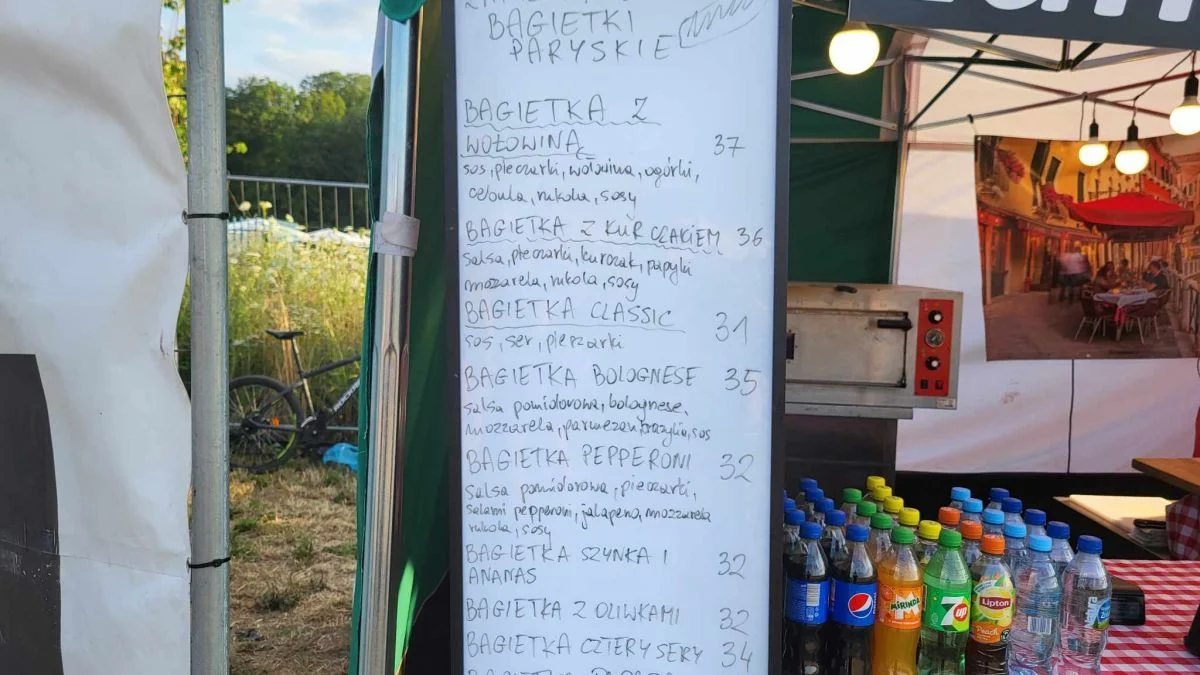 BAGIETKI
PARYSKIE
BAGIETKA Z
WOŁOWINĄ 37
sos, pieczarki, wołowina, ogórki,
cebula, rukola, sosy
BAGIETKA Z KURCZAKIEM 36
salsa, pieczarki, kurczak, papryki
mozzarela, rukola, sosy
BAGIETKA CLASSIC 31
sos, ser, pieczarki
BAGIETKA BOLOGNESE 35
salsa pomidorowa, bolognese,
mozzarela, parmezan, bazylia, sos
BAGIETKA PEPPERONI 32
salsa pomidorowa, pieczarki,
salami pepperoni, jalapeno, mozzarela
rukola, sosy
BAGIETKA SZYNKA I
ANANAS 32
BAGIETKA Z OLIWKAMI 32
BAGIETKA CZTERY SERY 34
BAGIETKA
pepsi
MIRINDA
7up
Lipton
Peach